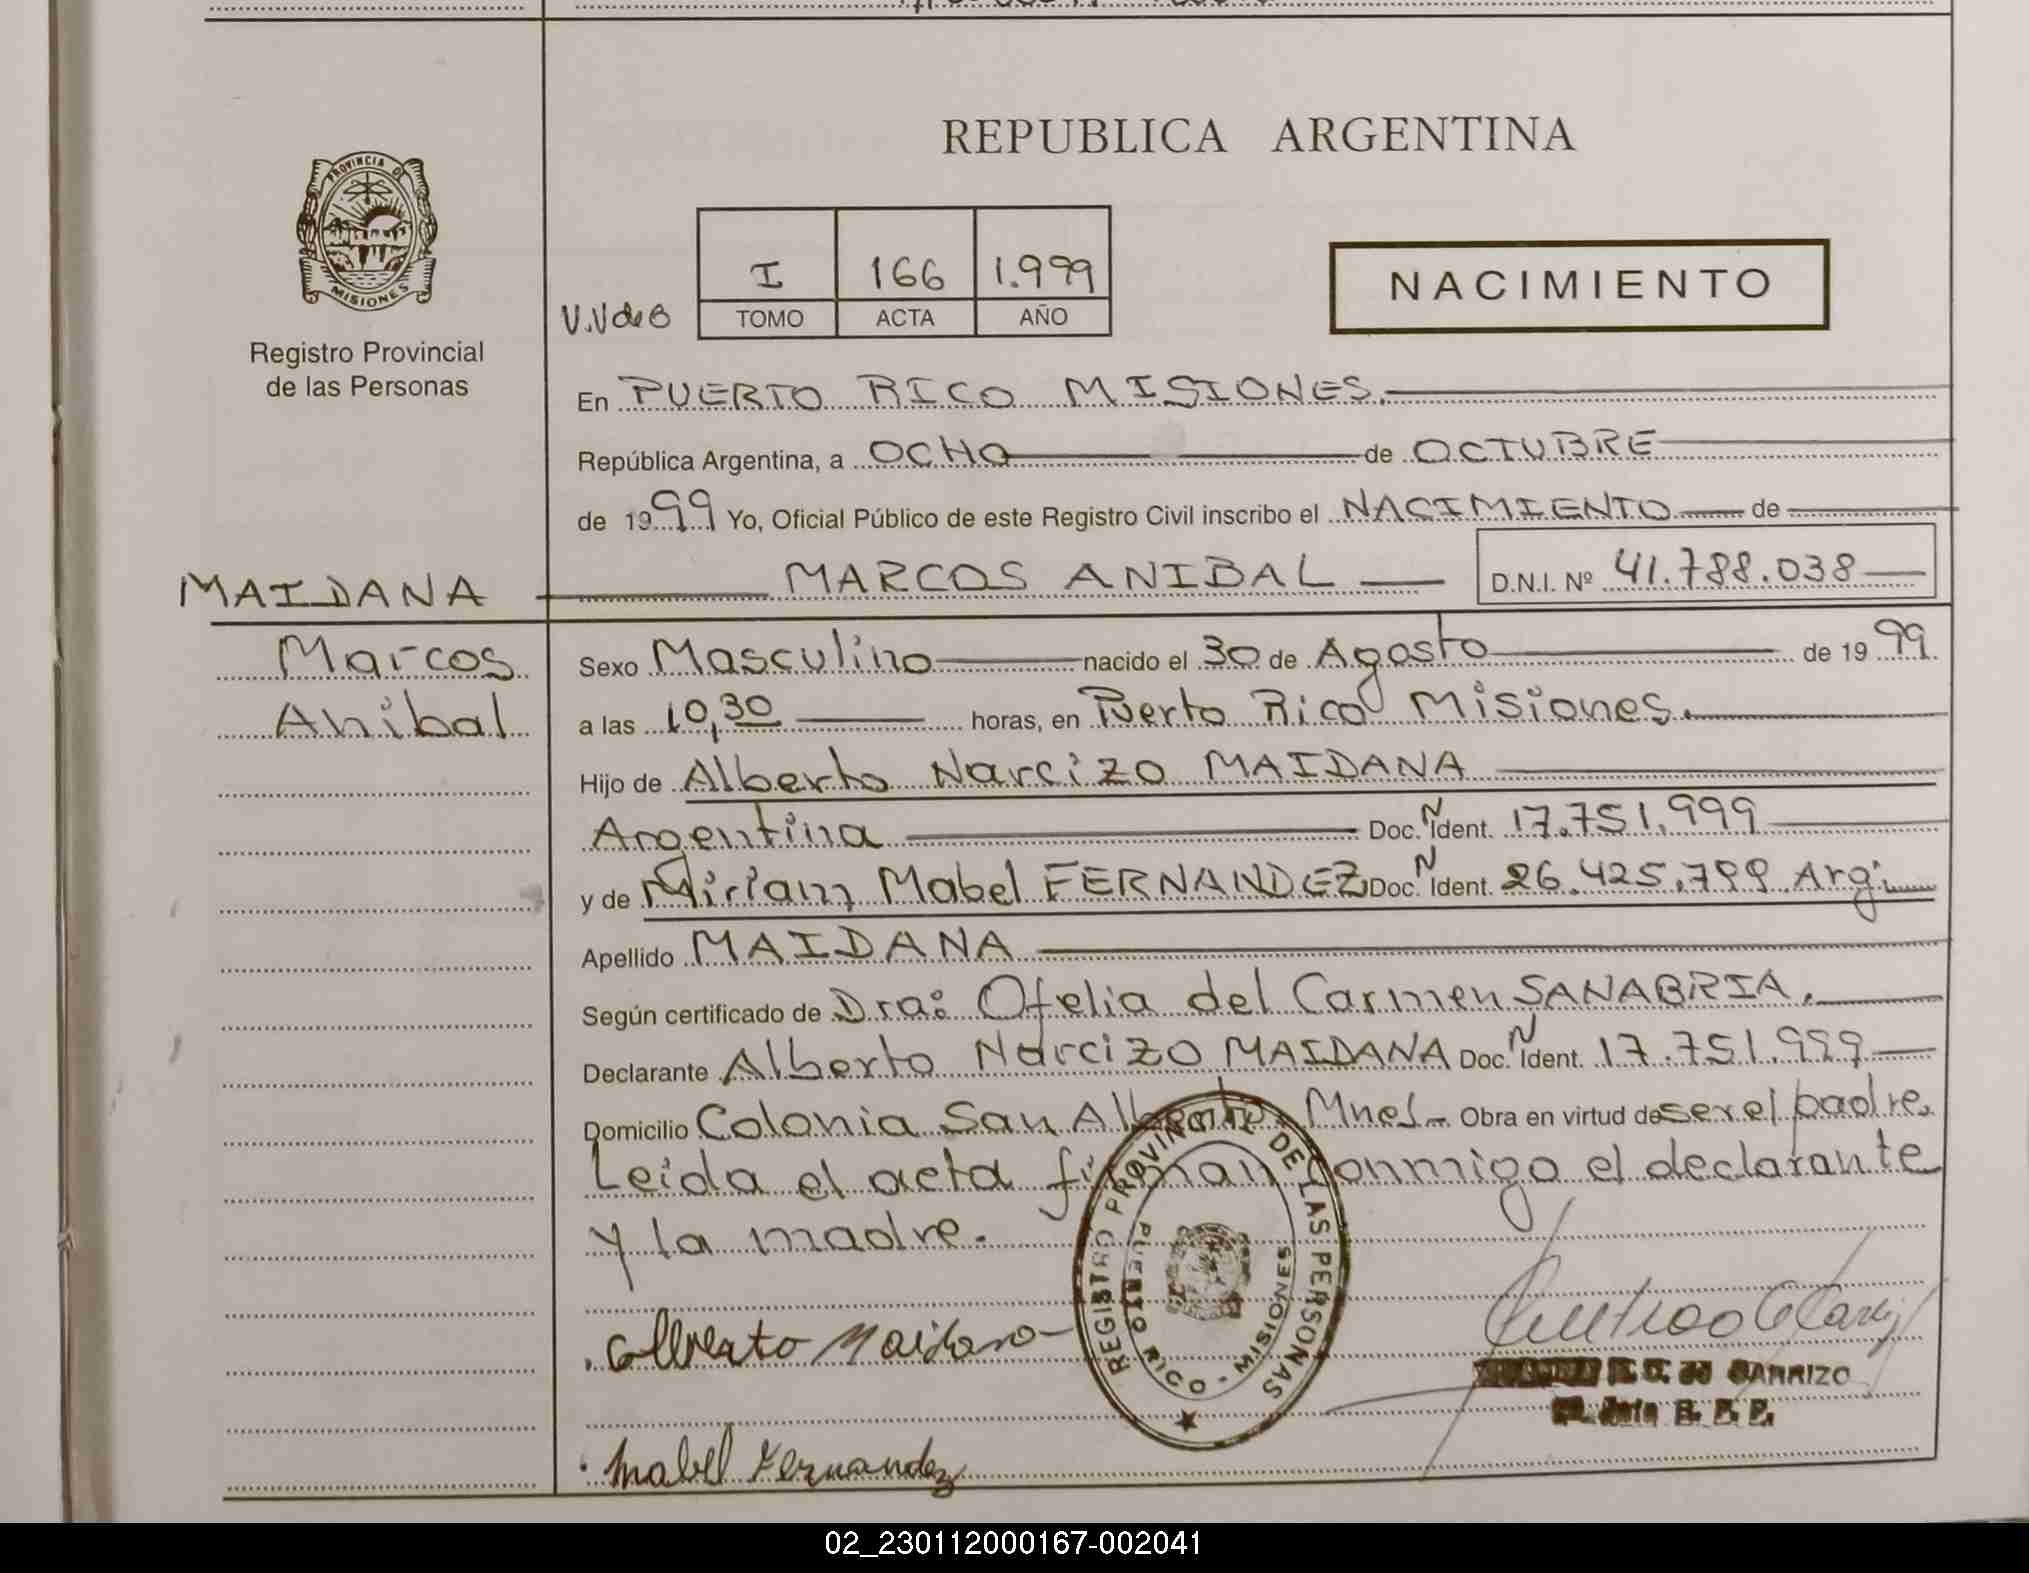 REPUBLICA ARGENTINA
PROVINCIA DE
MISIONES
Registro Provincial
de las Personas
V.V de B
I 166 1.999
TOMO ACTA AÑO
NACIMIENTO
En PUERTO RICO MISIONES.
República Argentina, a OCHO de OCTUBRE
de 1999 Yo, Oficial Público de este Registro Civil inscribo el NACIMIENTO de
MAIDANA MARCOS ANIBAL D.N.I. Nº 41.788.038
Marcos
Anibal
Sexo Masculino nacido el 30 de Agosto de 1999
a las 10,30 horas, en Puerto Rico Misiones.
Hijo de Alberto Narcizo MAIDANA
Argentina Doc. N Ident. 17.751.999
y de Miriam Mabel FERNANDEZ Doc. N Ident. 26.425.799 Arg.
Apellido MAIDANA
Según certificado de Dra: Ofelia del Carmen SANABRIA.
Declarante Alberto Narcizo MAIDANA Doc. N Ident. 17.751.999
Domicilio Colonia San Alberto Mnes. Obra en virtud de ser el padre.
Leida el acta firman conmigo el declarante
y la madre.
REGISTRO PROVINCIAL DE LAS PERSONAS
PUERTO RICO - MISIONES
Alberto Maidana
de CARRIZO
R. P. P.
Mabel Fernandez
02_230112000167-002041